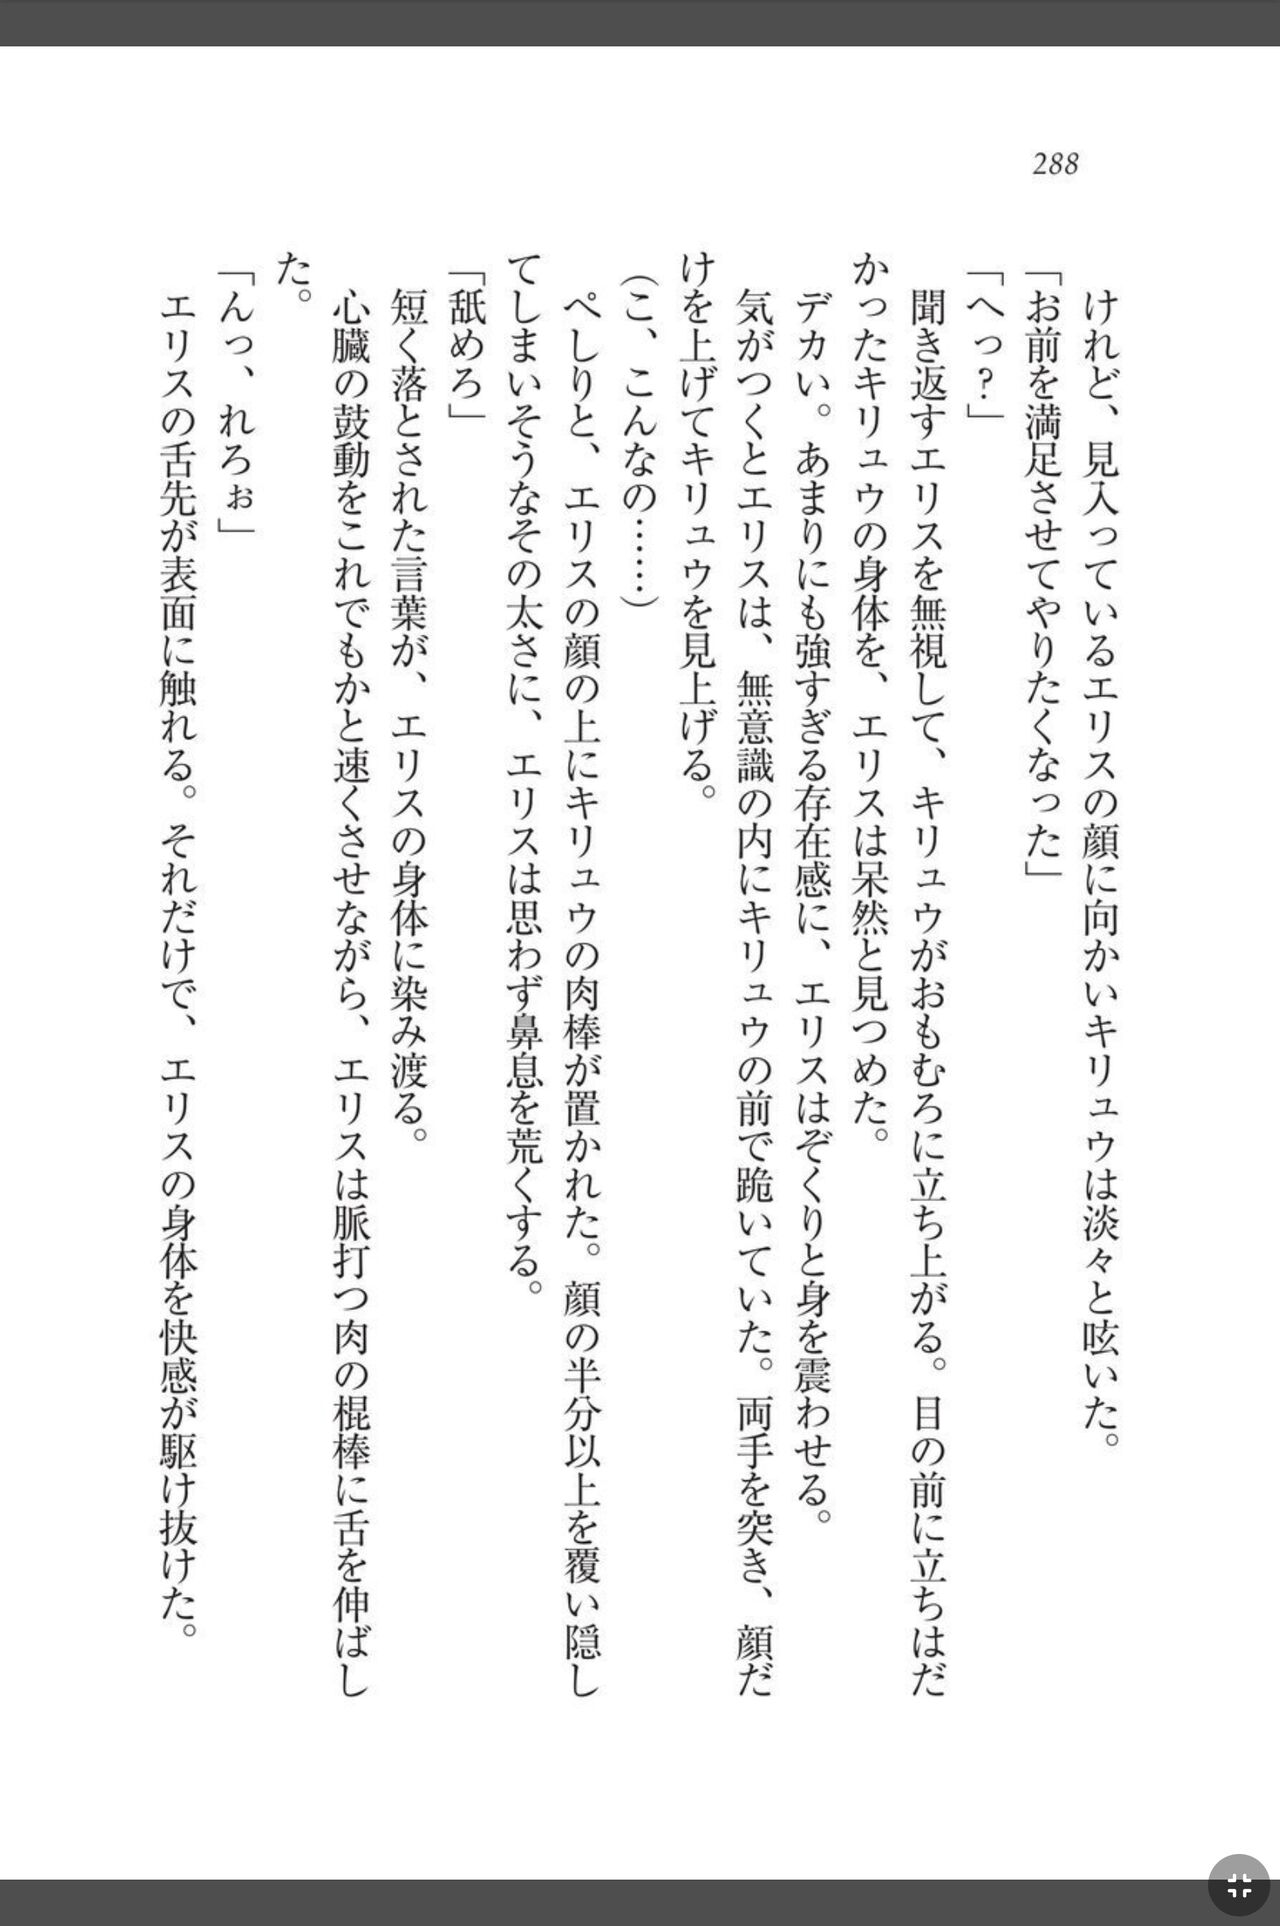 288
けれど、見入っているエリスの顔に向かいキリュウは淡々と呟いた。
「お前を満足させてやりたくなった」
「へっ？」
聞き返すエリスを無視して、キリュウがおもむろに立ち上がる。目の前に立ちはだ
かったキリュウの身体を、エリスは呆然と見つめた。
デカい。あまりにも強すぎる存在感に、エリスはぞくりと身を震わせる。
気がつくとエリスは、無意識の内にキリュウの前で跪いていた。両手を突き、顔だ
けを上げてキリュウを見上げる。
（こ、こんなの……）
ぺしりと、エリスの顔の上にキリュウの肉棒が置かれた。顔の半分以上を覆い隠し
てしまいそうなその太さに、エリスは思わず鼻息を荒くする。
「舐めろ」
短く落とされた言葉が、エリスの身体に染み渡る。
心臓の鼓動をこれでもかと速くさせながら、エリスは脈打つ肉の棍棒に舌を伸ばし
た。
「んっ、れろぉ」
エリスの舌先が表面に触れる。それだけで、エリスの身体を快感が駆け抜けた。